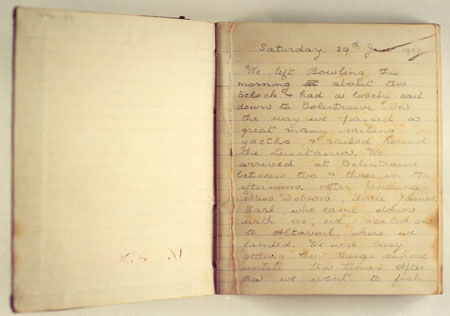 Saturday 29th June 1907
We left Bowling this
morning at about ten
oclock & had a lovely sail
down to Colintraive. On
the way we passed a
great many sailing
yacths, & sailed round
the Lusitania. We
arrived at Colintraive
between two & three in the
afternoon, after landing
Miss Dobson, Uncle James
Carl, who came down
with us, we sailed on
to Altavoil, where we
landed. We were busy
getting the things ashore
untill tea time. After
tea we went to fish